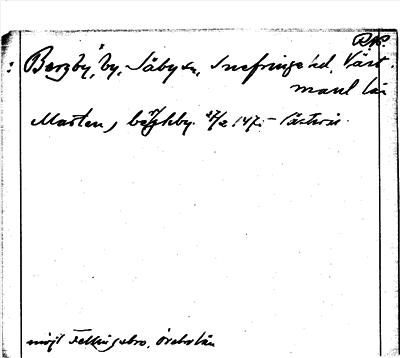 R.K.
: Bergby, by, Säby sn, Snefringe hd, Väst-
manl. län
Marten, bærghby 27/2 147.
möjl Fellingsbro, Örebro län